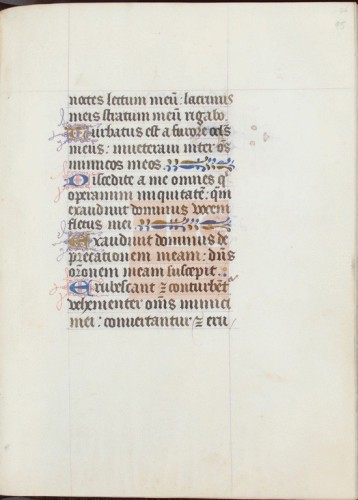 noctes lectum meū: lacrimis
meis stratum meū rigabo.
Turbatus est a furore ocls
meus: inueteraui inter oēs
inimicos meos.
Discedite a me omnes q̄
operamini iniquitatē: qm̄
exaudiuit dominus vocem
fletus mei.
Exaudiuit dominus de
precationem meam: dn̄s
orōnem meam suscepit.
Erubescant ⁊ conturbēt
vehementer om̄s inimici
mei: conuertantur ⁊ eru